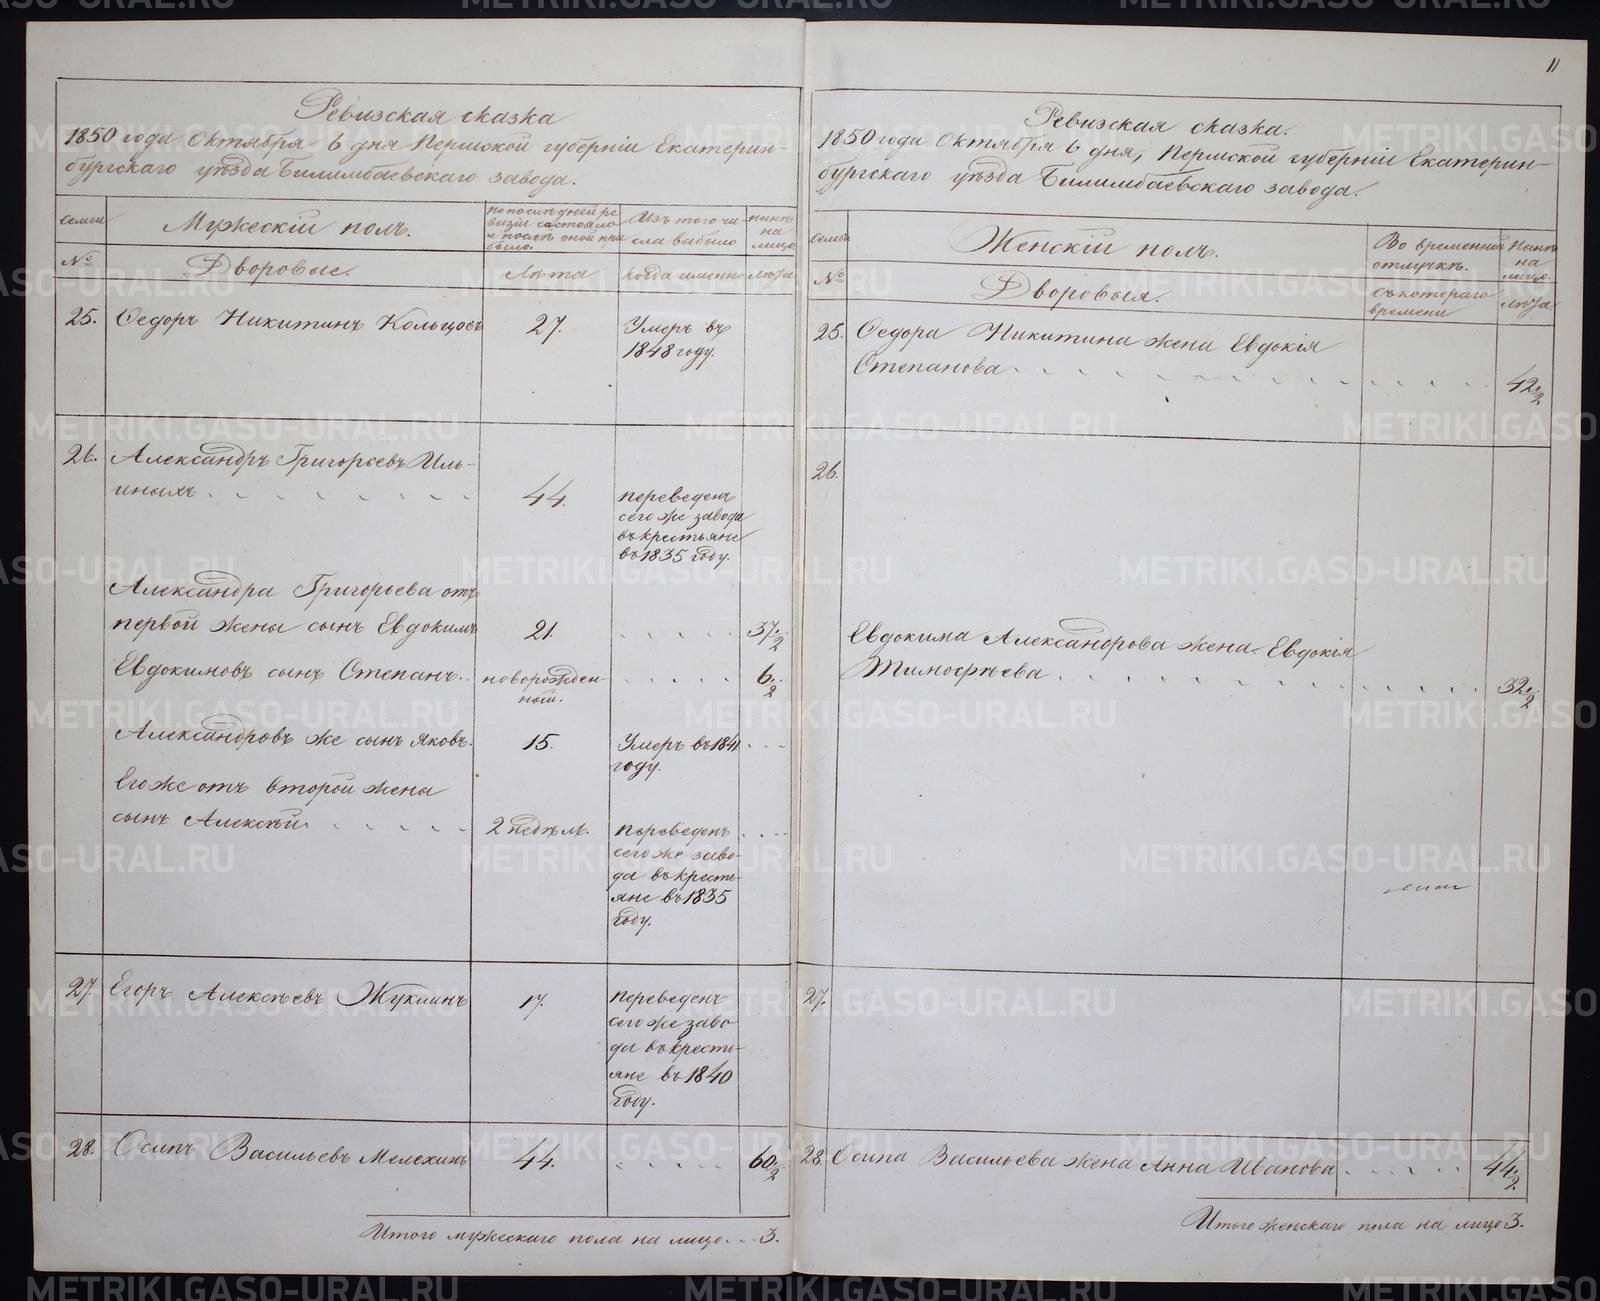 11
Ревизская сказка
1850 года Октября 6 дня Пермской губерніи Екатерин-
бургскаго уѣзда Билимбаевскаго завода.
семьи
Мужескій полъ.
по послѣдней ре
визіи состояло
и послѣ оной при
было.
Изъ того чи-
сла выбыло
нынѣ
на
лицо
№
Дворовые.
Лѣта
когда именно
лѣта
25. Ѳедоръ Никитинъ Кольцовъ
27.
Умеръ въ
1848 году.
26. Александръ Григорьевъ Иль-
иныхъ
44.
переведенъ
сего же завода
въ крестьяне
въ 1835 году.
Александра Григорьева отъ
первой жены сынъ Евдокимъ
21.
37 1/2
Евдокимовъ сынъ Степанъ
новорожден-
ный.
6 1/2
Александровъ же сынъ Яковъ.
15.
Умеръ въ 1841
году.
Его же отъ второй жены
сынъ Алексѣй.
2 недѣль.
переведенъ
сего же заво-
да въ кресть-
яне въ 1835
году.
27. Егоръ Алексѣевъ Жуклинъ
17.
переведенъ
сего же заво
да въ кресть-
яне въ 1840
году.
28. Осипъ Васильевъ Мелехинъ
44.
60 1/2
Итого мужескаго пола на лицо 3.
Ревизская сказка.
1850 года Октября 6 дня, Пермской губерніи Екатерин-
бургскаго уѣзда Билимбаевскаго завода.
семьи
Женскій полъ.
Во временной
отлучкѣ.
Нынѣ
на
лицо.
№
Дворовыя.
съ котораго
времени
лѣта
25. Ѳедора Никитина жена Евдокія
Степанова
42 1/2
26.
Евдокима Александрова жена Евдокія
Тимофѣева
32 1/2
27.
28. Осипа Васильева жена Анна Иванова
44 1/2
Итого женскаго пола на лицо 3.
METRIKI.GASO-URAL.RU